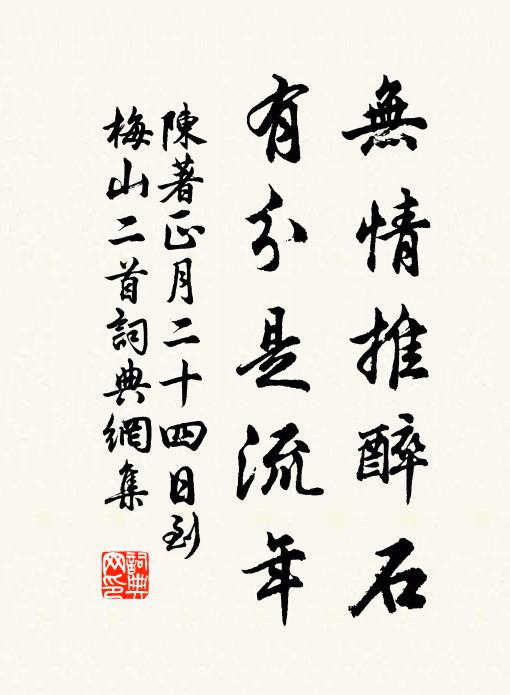 無情推醉石
有分是流年
陳著正月二十四日到
梅山二首詞典網集
詞典
网印